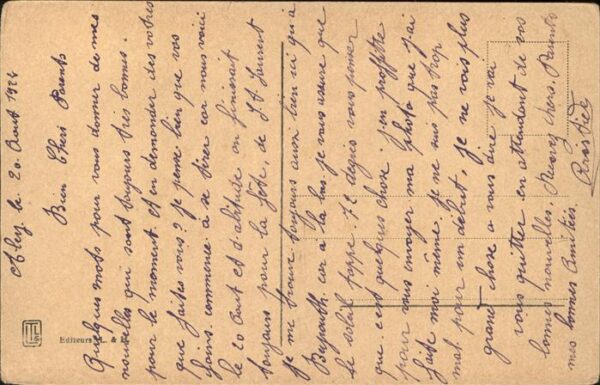 Aley le 20 Aout 1924
Bien Chers Parents
Quelques mots pour vous donner de mes
nouvelles qui sont toujours très bonnes.
pour le moment. et en demander des votres
que faites vous? Je pense bien que vos
foins commence à se tirer car nous voici
le 20 Aout et d'altitude on finissait
toujours pour la fête, de St. Laurent
Je me trouve toujours aussi bien ici qu'à
Beyrouth. car à la bas je vous assure que
le soleil frappe. 42 degrés vous penser
que c'est quelques chose. j'en profitte
pour vous envoyer ma photo que j'ai
faite moi même. Je ne suis pas trop
mal pour un début, Je ne vois plus
grand chose a vous dire je vai
vous quitter en attendant de vos
bonnes nouvelles. Recevez chers Parents
mes bonnes amitiés.
Editeurs L. &